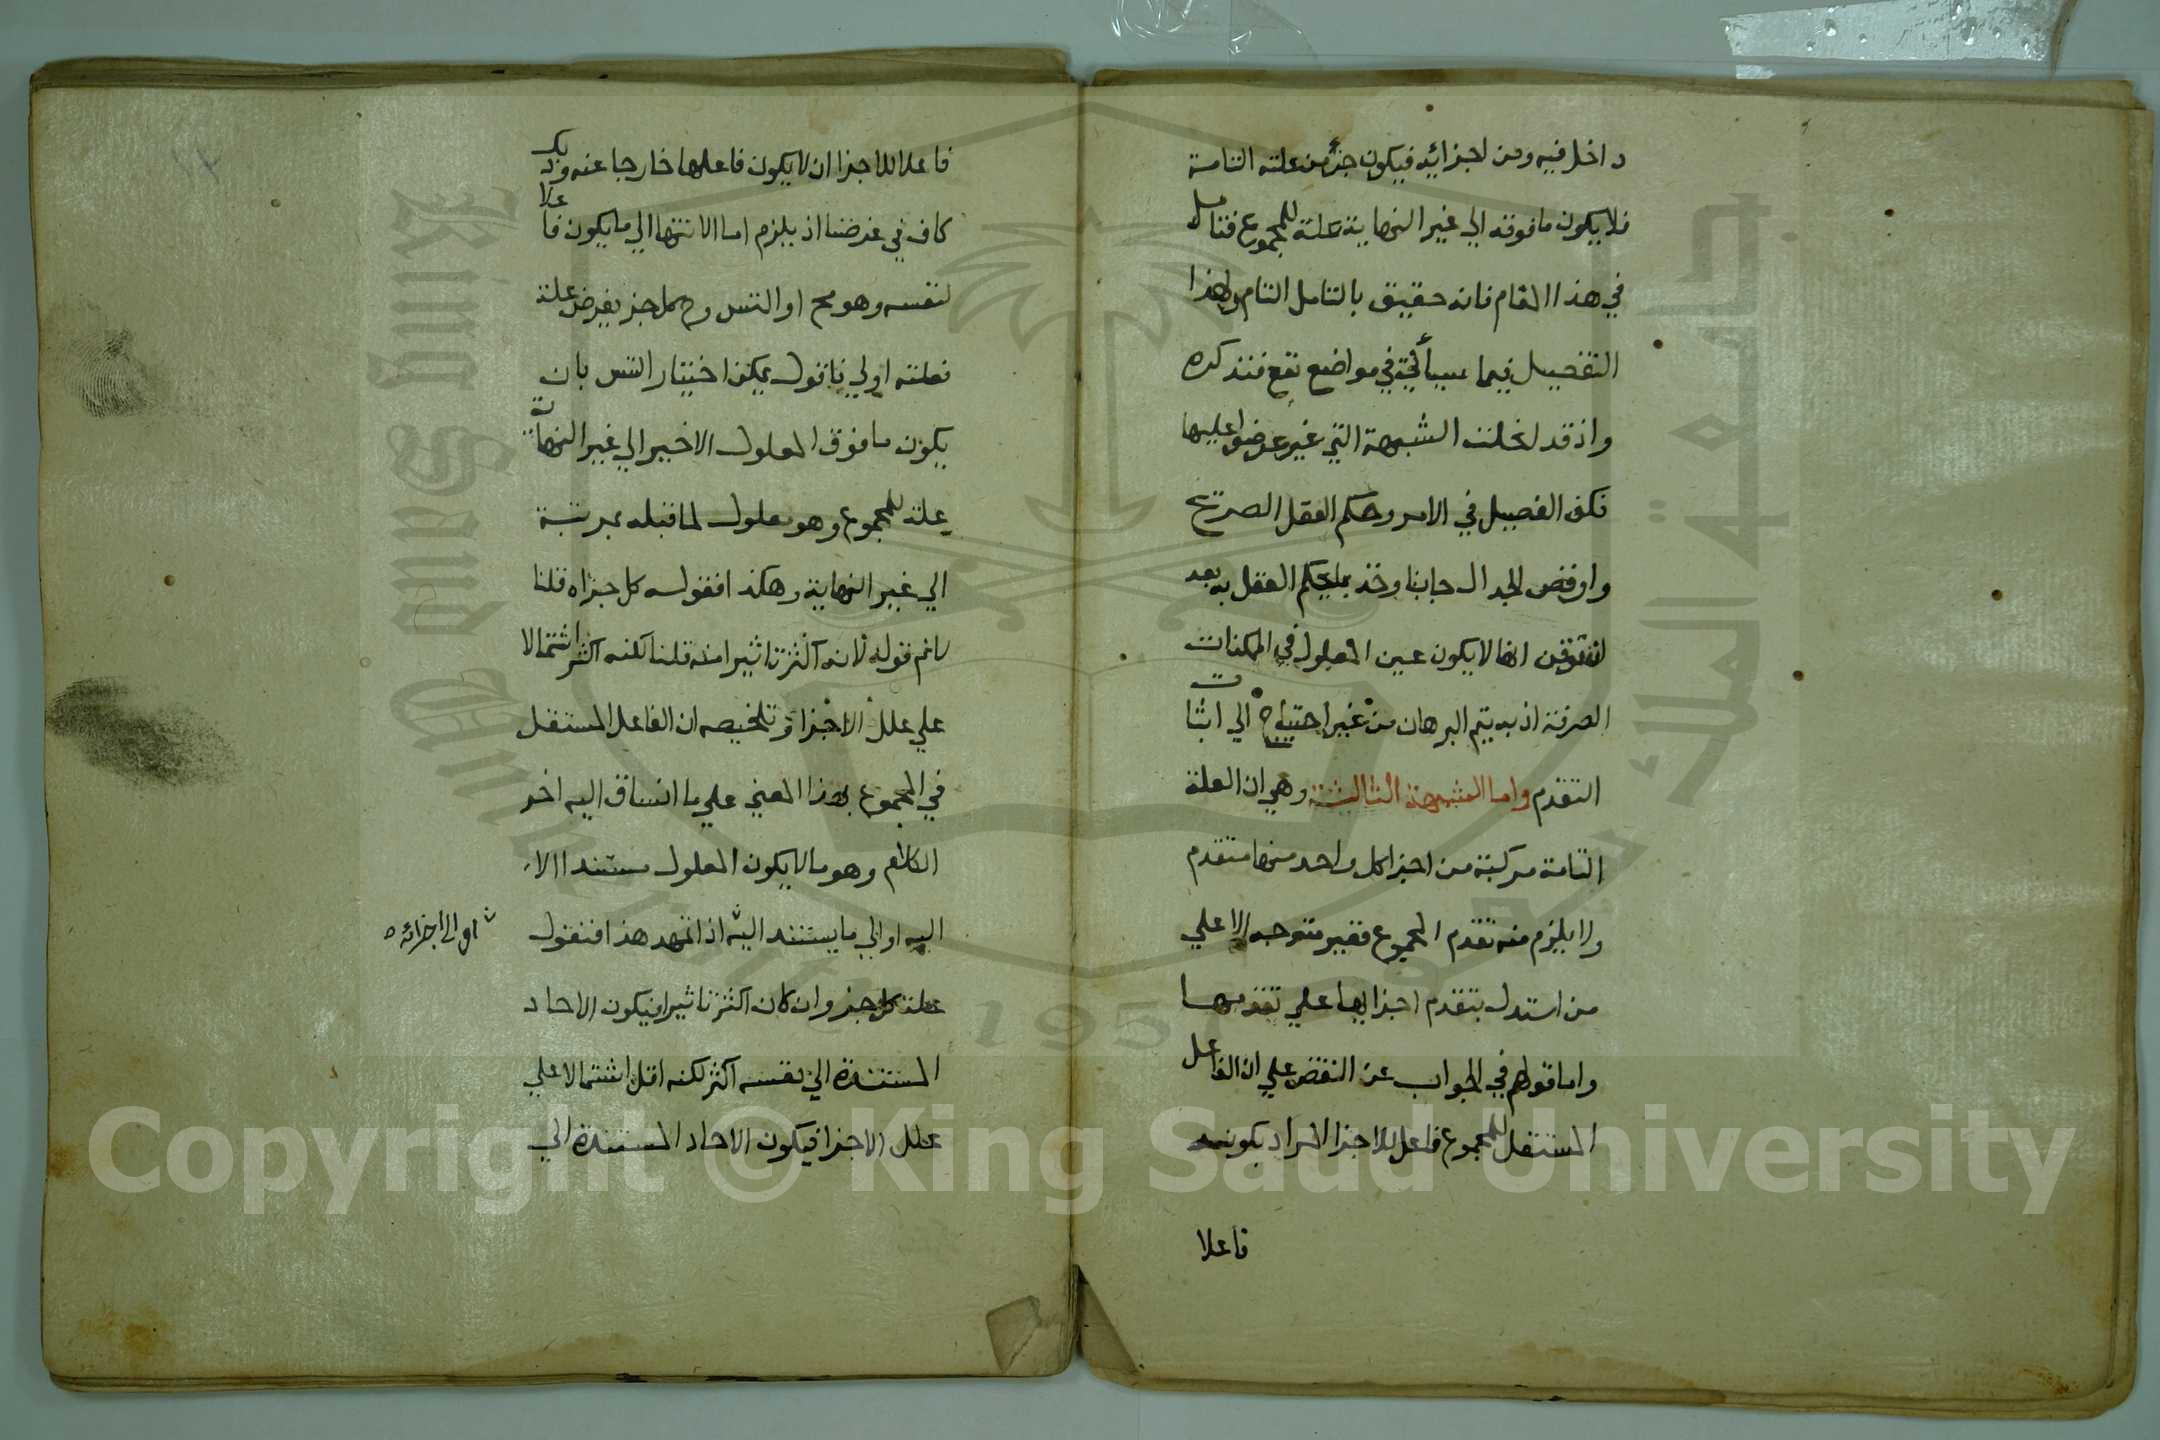 داخل فيه ومن اجزائه فيكون جزأ من علته التامة
فلا يكون ما فوقه الي غير النهاية علة للمجموع فتامل
في هذا المقام فانه حقيق بالتامل التام ولهذا
التفصيل فيما سيأتي في مواضع نفع فتذكره
واذ قد الشبهة التي غير عليها
فكن الفصيل في الامر وحكم العقل الصريح
وارفض الجدال جانبا وخذ بما يحكم العقل به بعد
انها لا يكون عين المعلول في الممكنات
الصرفة اذ به يتم البرهان من غير احتياج الي اثبات
التقدم واما الشبهة الثالثة وهي ان العلة
التامة مركبة من اجزا كل واحد منها متقدم
ولا يلزم منه تقدم المجموع فغير متوجه الا علي
من استدل بتقدم اجزايها علي تقدمها
واما قولهم في الجواب عن النقض علي ان الفاعل
المستقل للمجموع فاعل للاجزا المراد بكونه
فاعلا
فاعلا للاجزا ان لا يكون فاعلها خارجا عنه وذلك
كاف في غرضنا اذ يلزم اما الانتها الي ما يكون فاعلا
لنفسه وهو مح او التس وح كل جز يفرض علة
فعلته اولي فاقول يمكن اختيار التس بان
يكون ما فوق المعلول الاخير الي غير النهاية
علة للمجموع وهو معلول لما قبله بمرتبة
الي غير النهاية وهكذا فقوله كل جزاه قلنا
لانم قوله لانه اكثر تاثيرا منه قلنا لكنه اكثر اشتمالا
علي علل الاجزا وتلخيصه ان الفاعل المستقل
في المجموع بهذا المعني علي ما انساق اليه اخر
الكلام وهو ما لا يكون المعلول مستندا الا
اليه او الي ما يستند اليه اذا تمهد هذا فنقول
او الي اجزائه
علة كل جز وان كان اكثر تاثيرا فيكون الاحاد
المستندة الي نفسه اكثر لكنه اقل اشتمالا علي
علل الاجزا فيكون الاحاد المستندة الي
Copyright © King Saud University
جامعة الملك سعود
King Saud University
1957